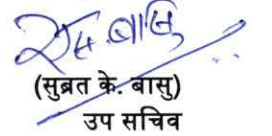 (सुब्रत के. बासु)
उप सचिव